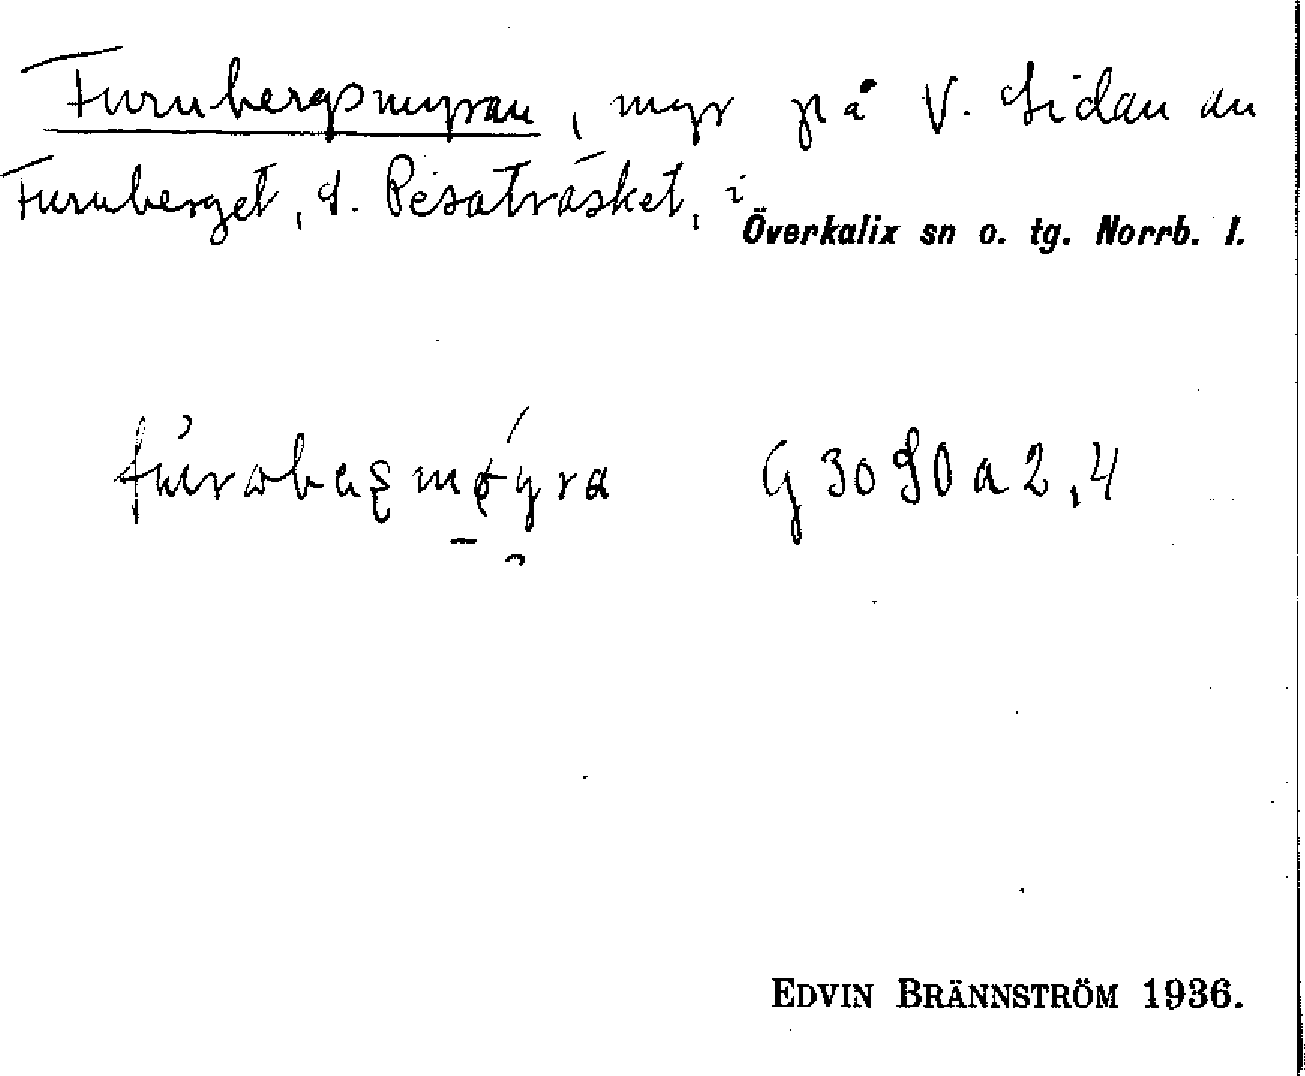 Furubergsmyran, myr på V. sidan au
Furuberget, S. Pesaträsket, i
Överkalix sn o. tg. Norrb. l.
G 3090 a 2,4
EDVIN BRÄNNSTRÖM 1936.